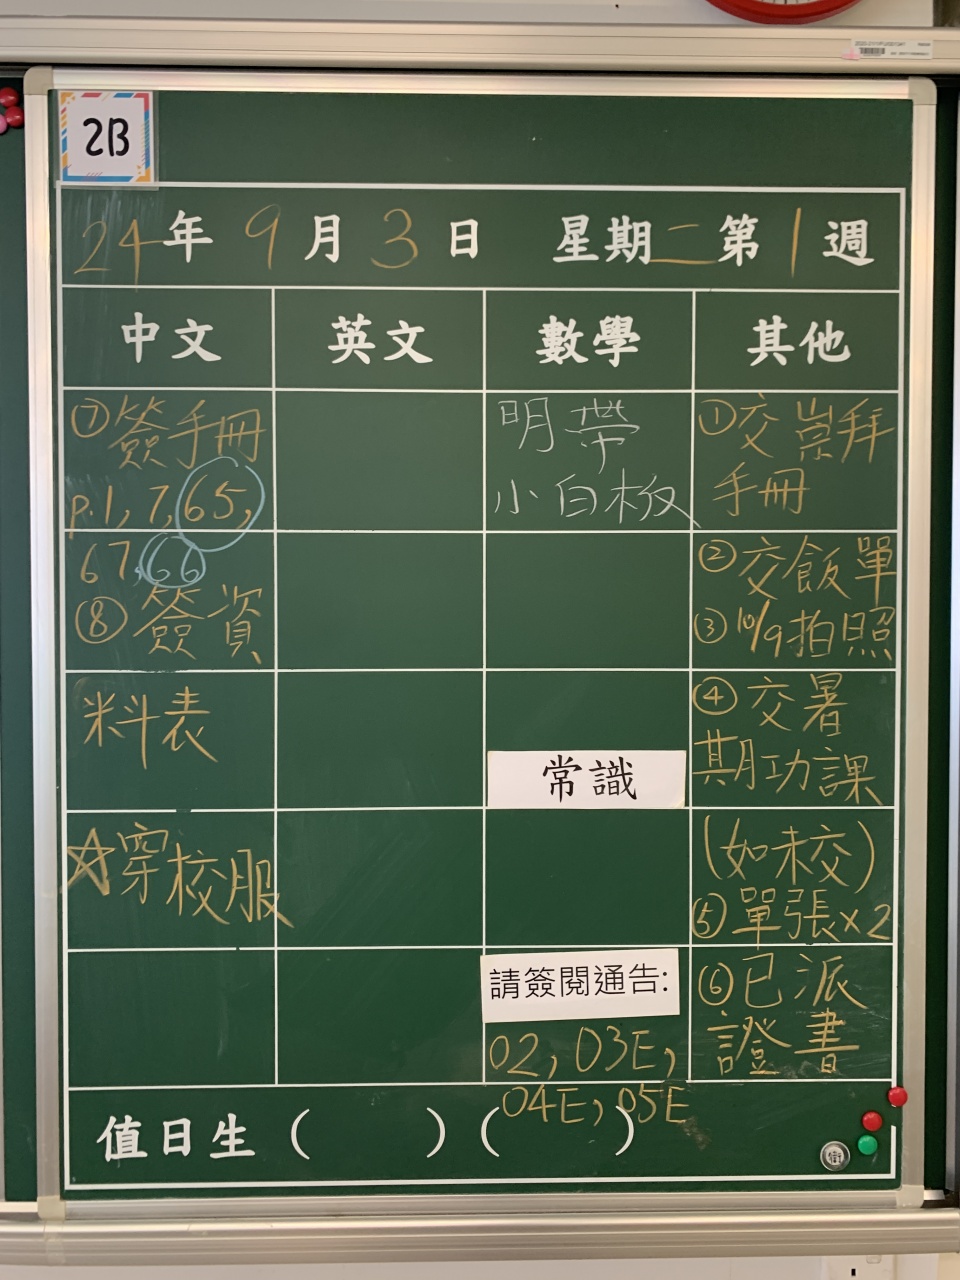 2B
24年 9月3日 星期二第1週
中文 英文 數學 其他
⑦簽手冊
p.1, 7, 65,
67, 66
⑧簽資
料表
☆穿校服
明帶
小白板
常識
請簽閱通告:
02, 03E,
04E, 05E
①交崇拜
手冊
②交飯單
③10/9拍照
④交暑
期功課
(如未交)
⑤單張x2
⑥已派
證書
值日生 ( ) ( )